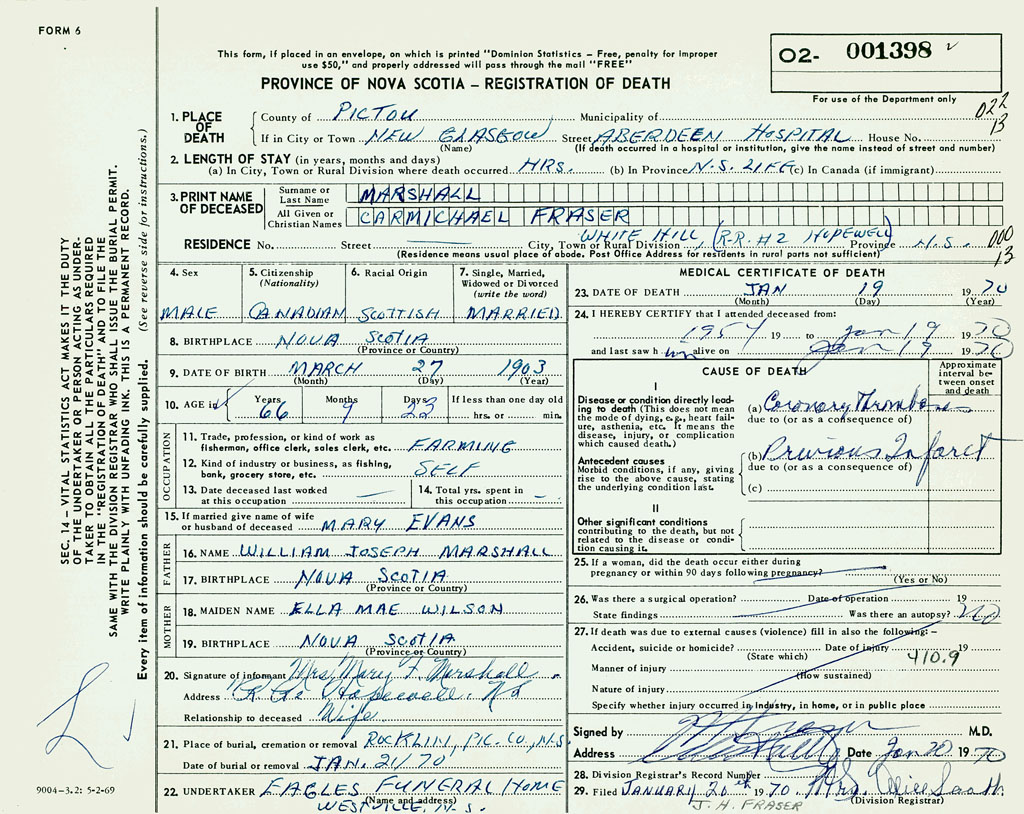 FORM 6
This form, if placed in an envelope, on which is printed "Dominion Statistics – Free, penalty for improper
use $50," and properly addressed will pass through the mail "FREE"
PROVINCE OF NOVA SCOTIA – REGISTRATION OF DEATH
02- 001398
For use of the Department only
022
13
1. PLACE OF DEATH
County of PICTOU Municipality of
If in City or Town NEW GLASGOW Street ABERDEEN HOSPITAL House No.
(Name) (If death occurred in a hospital or institution, give the name instead of street and number)
2. LENGTH OF STAY (in years, months and days)
(a) In City, Town or Rural Division where death occurred HRS. (b) In Province N.S. LIFE (c) In Canada (if immigrant)
3. PRINT NAME OF DECEASED
Surname or Last Name MARSHALL
All Given or Christian Names CARMICHAEL FRASER
RESIDENCE No. Street City, Town or Rural Division WHITE HILL (R.R. #2 HOPEWELL) Province N.S.
000
13
(Residence means usual place of abode. Post Office Address for residents in rural parts not sufficient)
4. Sex
MALE
5. Citizenship
(Nationality)
CANADIAN
6. Racial Origin
SCOTTISH
7. Single, Married,
Widowed or Divorced
(write the word)
MARRIED
8. BIRTHPLACE NOVA SCOTIA
(Province or Country)
9. DATE OF BIRTH MARCH 27 1903
(Month) (Day) (Year)
10. AGE in Years Months Days If less than one day old
66 9 23 hrs. or min.
OCCUPATION
11. Trade, profession, or kind of work as
fisherman, office clerk, sales clerk, etc. FARMING
12. Kind of industry or business, as fishing,
bank, grocery store, etc. SELF
13. Date deceased last worked
at this occupation
14. Total yrs. spent in
this occupation
15. If married give name of wife
or husband of deceased MARY EVANS
FATHER
16. NAME WILLIAM JOSEPH MARSHALL
17. BIRTHPLACE NOVA SCOTIA
(Province or Country)
MOTHER
18. MAIDEN NAME ELLA MAE WILSON
19. BIRTHPLACE NOVA SCOTIA
(Province or Country)
20. Signature of informant Mrs Mary F. Marshall
Address Hopewell. NS
Relationship to deceased Wife
21. Place of burial, cremation or removal ROCKLIN, PIC. CO., N.S.
Date of burial or removal JAN. 21/70
22. UNDERTAKER EAGLES FUNERAL HOME
(Name and address)
WESTVILLE, N.S.
MEDICAL CERTIFICATE OF DEATH
23. DATE OF DEATH JAN 19 1970
(Month) (Day) (Year)
24. I HEREBY CERTIFY that I attended deceased from:
1957 19 to Jan 19 1970
and last saw him alive on Jan 19 1970
CAUSE OF DEATH
Approximate
interval be-
tween onset
and death
I
Disease or condition directly lead-
ing to death (This does not mean
the mode of dying, e.g., heart fail-
ure, asthenia, etc. It means the
disease, injury, or complication
which caused death.)
(a) Coronary Thrombosis
due to (or as a consequence of)
Antecedent causes
Morbid conditions, if any, giving
rise to the above cause, stating
the underlying condition last.
(b) Previous Infarct
due to (or as a consequence of)
(c)
II
Other significant conditions
contributing to the death, but not
related to the disease or condi-
tion causing it.
25. If a woman, did the death occur either during
pregnancy or within 90 days following pregnancy?
(Yes or No)
26. Was there a surgical operation? Date of operation 19
State findings Was there an autopsy? NO
27. If death was due to external causes (violence) fill in also the following: –
Accident, suicide or homicide? Date of injury 19
(State which) 410.9
Manner of injury
(How sustained)
Nature of injury
Specify whether injury occurred in Industry, in home, or in public place
Signed by M.D.
Address Date Jan 20 1970
28. Division Registrar's Record Number
29. Filed JANUARY 20th 1970 Mrs. Alice
(Division Registrar)
J. H. FRASER
SEC. 14 – VITAL STATISTICS ACT MAKES IT THE DUTY
OF THE UNDERTAKER OR PERSON ACTING AS UNDER-
TAKER TO OBTAIN ALL THE PARTICULARS REQUIRED
IN THE "REGISTRATION OF DEATH" AND TO FILE THE
SAME WITH THE DIVISION REGISTRAR WHO SHALL ISSUE THE BURIAL PERMIT.
WRITE PLAINLY WITH UNFADING INK. THIS IS A PERMANENT RECORD.
Every item of information should be carefully supplied. (See reverse side for instructions.)
9004–3.2: 5-2-69